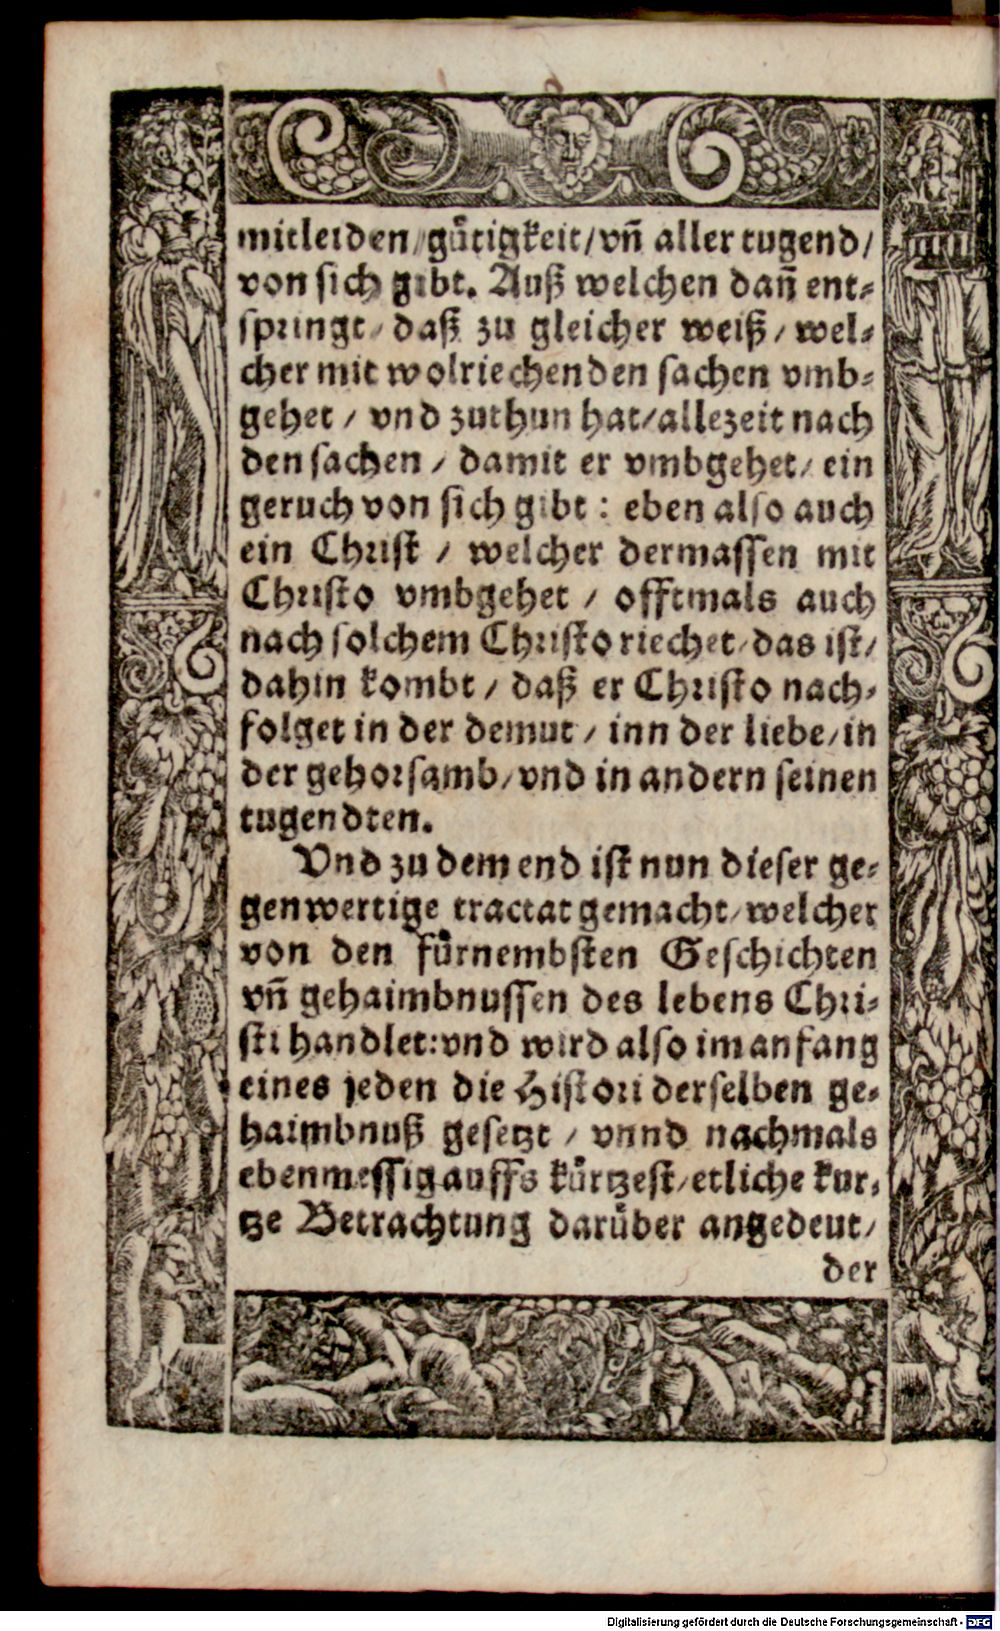 mitleiden/gütigkeit/vñ aller tugend/
von sich gibt. Auß welchen dañ ent-
springt/daß zu gleicher weiß/wel-
cher mit wolriechenden sachen vmb-
gehet / vnd zuthun hat/allezeit nach
den sachen / damit er vmbgehet/ ein
geruch von sich gibt : eben also auch
ein Christ / welcher dermassen mit
Christo vmbgehet / offtmals auch
nach solchem Christo riechet/das ist/
dahin kombt / daß er Christo nach-
folget in der demut / inn der liebe/in
der gehorsamb/vnd in andern seinen
tugendten.
Vnd zu dem end ist nun dieser ge-
genwertige tractat gemacht/welcher
von den fürnembsten Geschichten
vñ gehaimbnussen des lebens Chri-
sti handlet:vnd wird also im anfang
eines jeden die Histori derselben ge-
haimbnuß gesetzt / vnnd nachmals
ebenmessig auffs kürtzest/etliche kur-
tze Betrachtung darüber angedeut/
der
Digitalisierung gefördert durch die Deutsche Forschungsgemeinschaft - DFG